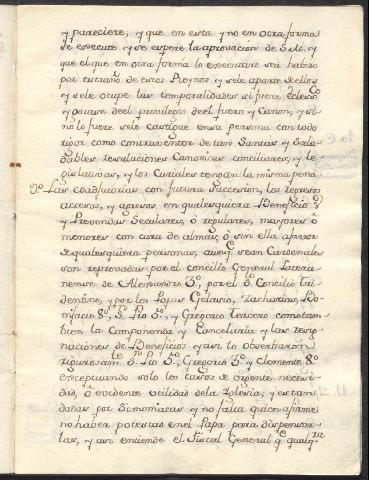 y pareciere, y que en esta, y no en otra forma
se execute, y se espere la aprovacion de S. M. y
que el que en otra forma lo executare sea habido
por estraño de estos Reynos y se le aparte de ellos
y se le ocupe las temporalidades si fuere Ecless.co
y goçare del privilegio del fuero y Canon, y si
no lo fuere se le castigue en su persona con todo
rigor como contraventor de tan Santas y Salu
dables resoluciones Canonicas conciliares, y le
gislativas, y los Curiales tengan la misma pena
Las coadjutorias con futura Succesion, los regresos
accesos, y agresos en qualesquiera Beneficios
y Prevendas Seculares, ó regulares, mayores ó
menores con cura de almas, ó sin ella afavor
de qualesquiera personas, aunq. sean Cardenales
son reprovadas por el concilio General Latera
nense de Alexandro 3º, por el S. Concilio Tri
dentino, y por los Papas Gelasio, Zacharias, Bo
nifacio 8º, S. Pio 5º, y Gregorio Tercero como tam
bien la Componenda y Cancelaria y las resig
naciones de Beneficios y asi lo observaron
rigurosam.te S. Pio 5º, Gregorio 3º y Clemente 8º
exceptuando solo los casos de urgente necesi
dad, ó evidente utilidad dela Iglesia, y estan
dadas por Simoniacas y no falta quien afirme
no haber potestad en el Papa para dispensar
las, y asi entiende el Fiscal General q.e qualq.ra